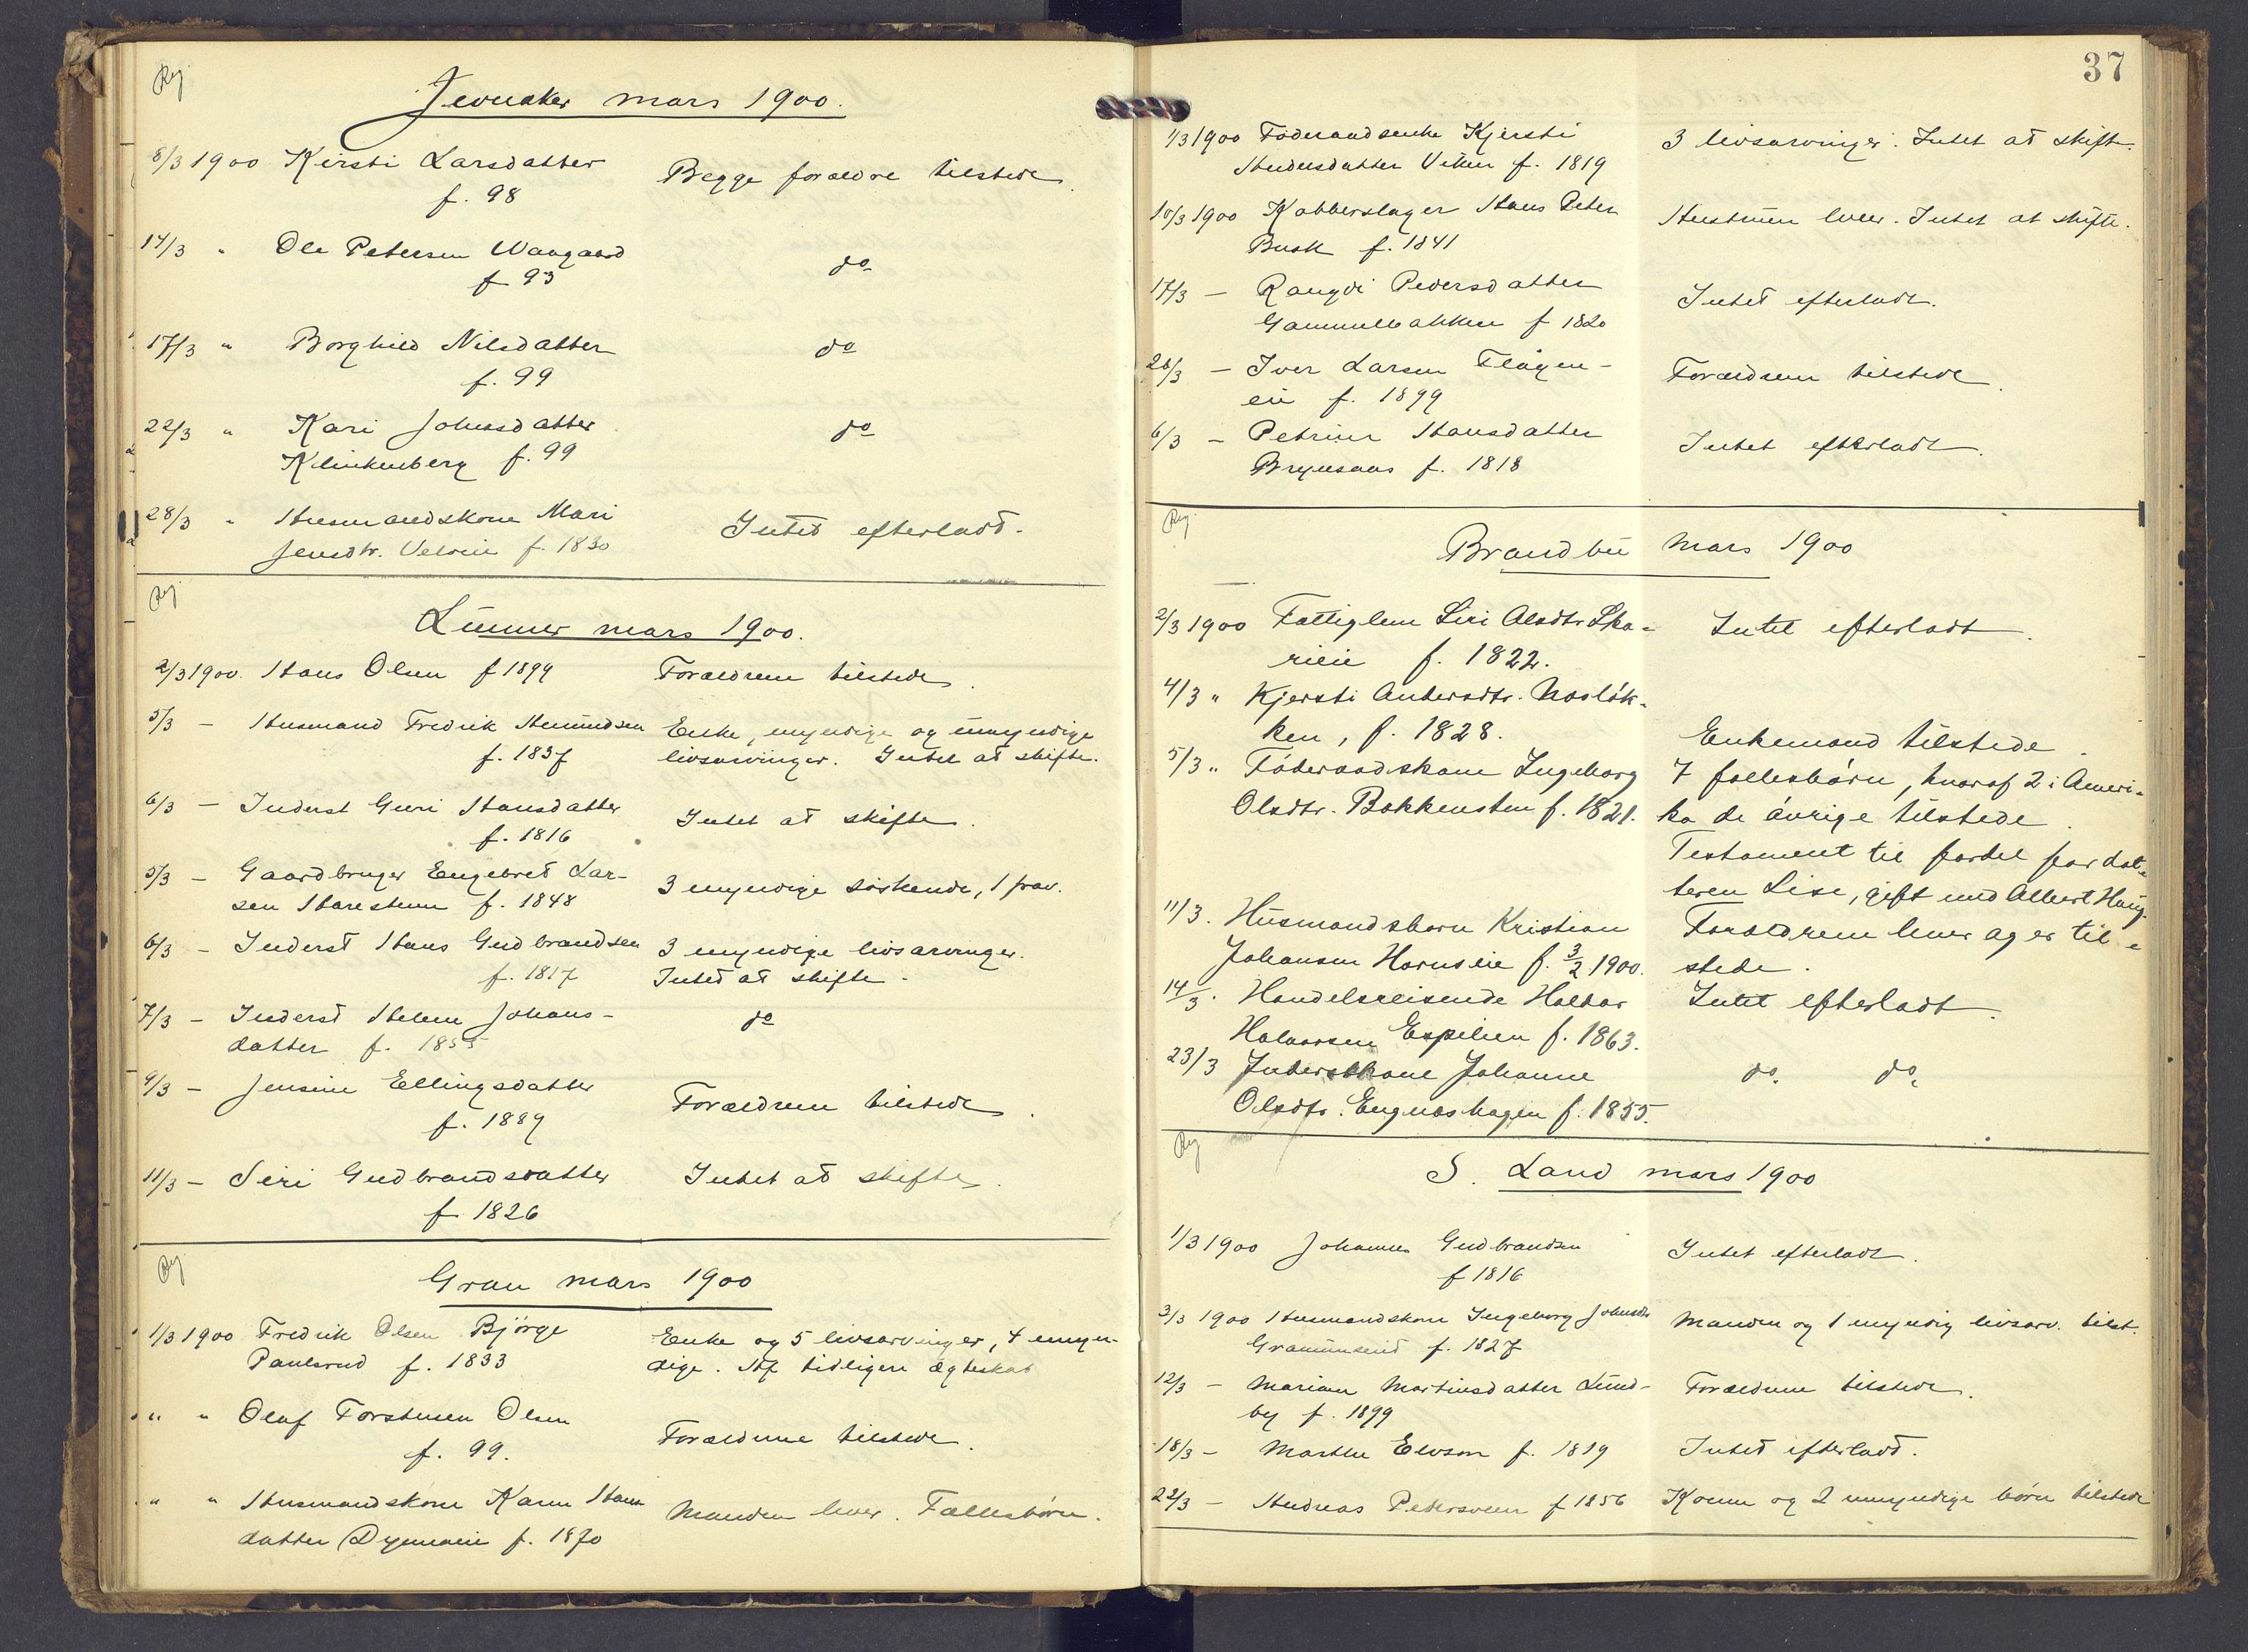 Reg
Jevnaker mars 1900.
8/3 1900 Kirsti Larsdatter
f. 98
Begge forældre tilstede.
14/3 " Ole Petersen Waagaard
f 93
do
17/3 " Borghild Nilsdatter
f. 99
do
22/3 " Kari Johnsdatter
Klinkenberg f. 99
do
28/3 " Husmandskone Mari
Jensdtr. Velseie f. 1830
Intet efterladt.
Reg
Lunner mars 1900.
2/3 1900. Hans Olsen f 1899
Forældrene tilstede.
5/3 – Husmand Fredrik Amundsen
f. 1837
Enke, myndige og umyndige
livsarvinger. Intet at skifte.
6/3 – Inderst Guri Hansdatter
f. 1816
Intet at skifte.
5/3 – Gaardbruger Engebret Lar-
sen Harestuen f. 1848
3 myndige søskende, 1 frav.
6/3 – Inderst Hans Gudbrandsen
f. 1817
3 myndige livsarvinger.
Intet at skifte.
7/3 – Inderst Helene Johans-
datter f. 1855
do
9/3 – Jensine Ellingsdatter
f. 1889
Forældrene tilstede.
11/3 – Siri Gudbrandsdatter
f 1826
Intet at skifte.
Reg
Gran mars 1900
1/3 1900 Fredrik Olsen Bjørge
Paulsrud f. 1833
Enke og 5 livsarvinger, 4 umyn-
dige. Af tidligere ægteskab
" " Olaf Torstensen Olsen
f. 99.
Forældrene tilstede.
" " Husmandskone Karen Hans
datter Dynneeie f. 1870
Manden lever. Fællesbørn.
37
1/3 1900 Føderaadsenke Kjersti
Andersdatter Viken f. 1819
3 livsarvinger. Intet at skifte.
10/3 1900 Kobberslager Hans Peter
Busk f. 1841
Hustruen lever. Intet at skifte.
17/3 – Rangdi Pedersdatter
Gammelbakken f 1820
Intet efterladt.
26/3 – Iver Larsen Flågen-
eie f. 1899
Forældrene tilstede.
6/3 – Petrine Hansdatter
Brynsaas f. 1818
Intet efterladt.
Reg
Brandbu mars 1900
2/3 1900 Fattiglem Siri Olsdtr Ska-
rieie f. 1822.
Intet efterladt.
4/3 " Kjersti Andersdtr. Nosløk-
ken, f. 1828.
Enkemand tilstede.
5/3 " Føderaadskone Ingeborg
Olsdtr. Bakkensten f. 1821.
7 fællesbørn, hvoraf 2 i Ameri-
ka de øvrige tilstede.
Testament til fordel for dat-
teren Lise, gift med Albert Haug.
11/3. Husmandsbarn Kristian
Johansen Hornseie f. 3/2 1900.
Forældrene lever og er til-
stede.
14/3. Handelsreisende Haldor
Halvorsen Espelien f. 1863.
Intet efterladt.
23/3 Inderstkone Johanne
Olsdtr. Engnæshagen f. 1855.
do. do.
Reg
S. Land mars 1900
1/3 1900 Johannes Gudbrandsen
f 1816
Intet efterladt.
3/3 1900 Husmandskone Ingeborg Johnsdtr
f. 1827
Manden og 1 myndig livsarv. tilst.
12/3 – Marian Martinsdatter Lund-
by f. 1899
Forældrene tilstede.
18/3 – Marthe Evson f. 1819
Intet efterladt.
22/3 – Andreas Pedersveen f 1856
Konen og 2 umyndige børn tilstede